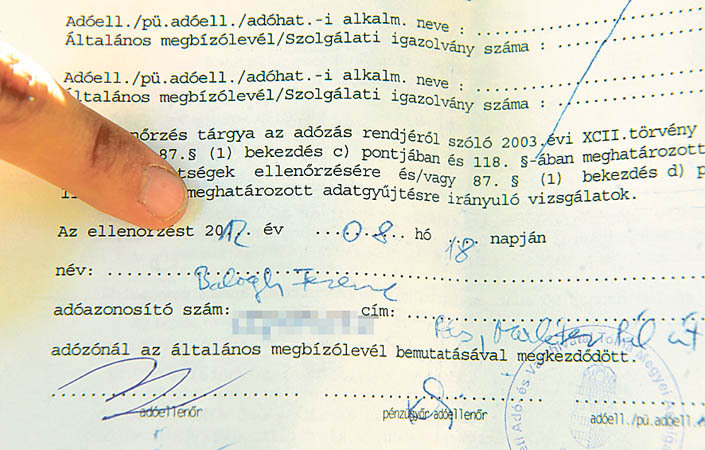 Adóell./pü.adóell./adóhat.-i alkalm. neve :
Általános megbízólevél/Szolgálati igazolvány száma :
Adóell./pü.adóell./adóhat.-i alkalm. neve :
Általános megbízólevél/Szolgálati igazolvány száma :
enőrzés tárgya az adózás rendjéről szóló 2003.évi XCII.törvény
87.§ (1) bekezdés c) pontjában és 118. §-ában meghatározott
tségek ellenőrzésére és/vagy 87. § (1) bekezdés d) p
meghatározott adatgyűjtésre irányuló vizsgálatok.
Az ellenőrzést 2012 év ...08.. hó .18. napján
név: Balogh Ferenc
adóazonosító szám: cím: Pál út
adózónál az általános megbízólevél bemutatásával megkezdődött.
adóellenőr pénzügyőr adóellenőr adóell./pü.adóell.